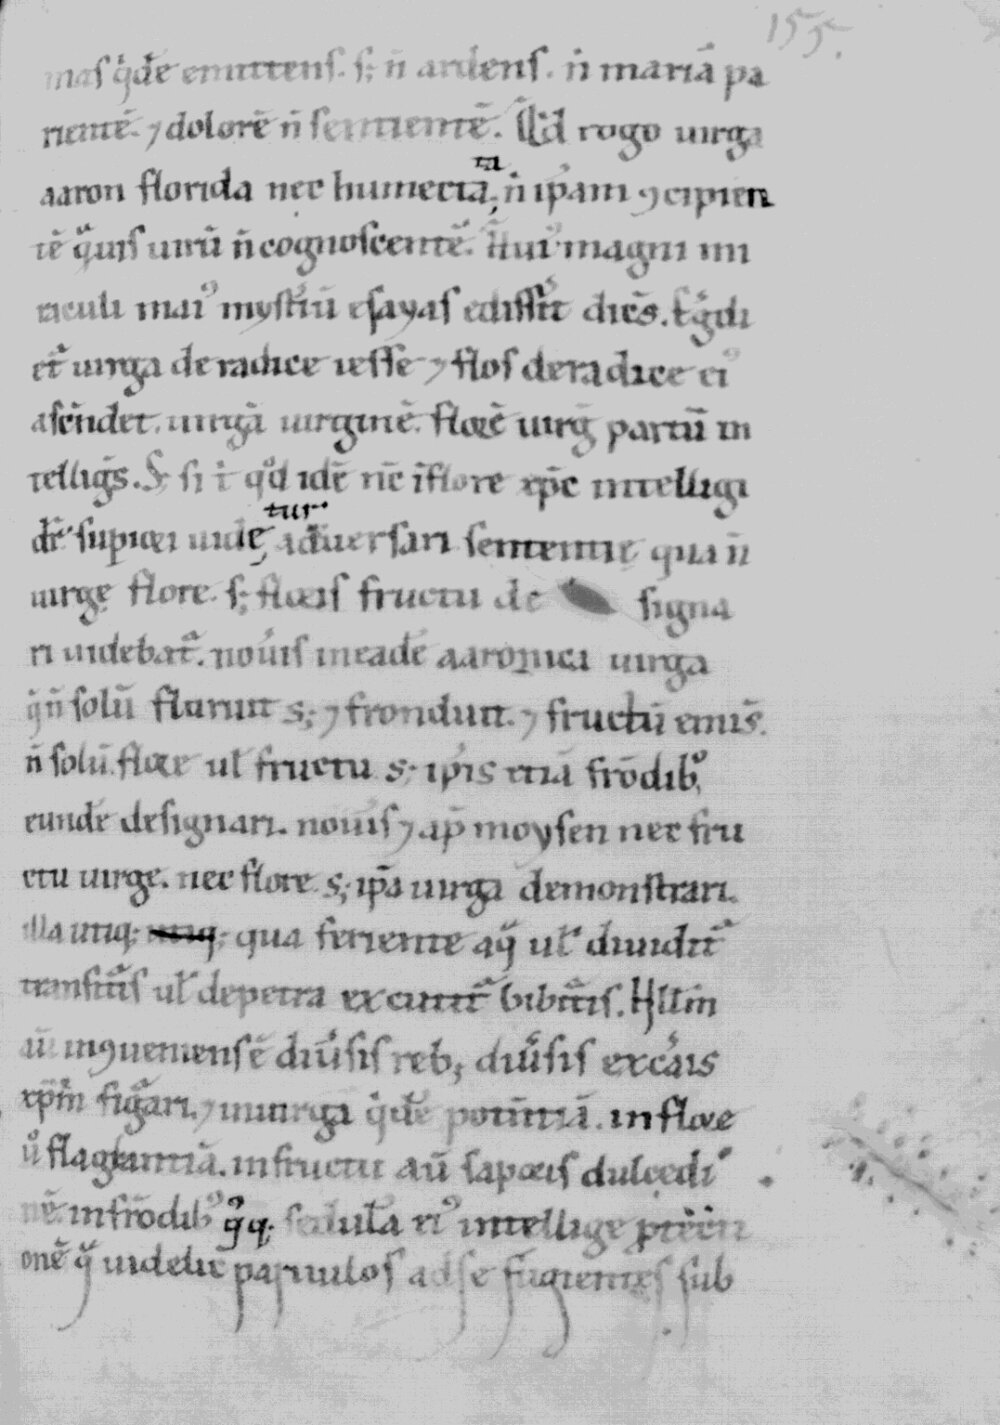 155.
mas q̇dē emittens. s; n̄ ardens. n̄ mariā pa
rientē. ⁊ dolorē n̄ sentientē. Qͥd rogo uirga
aaron florida nec humectata, n̄ ip̄am ꝯcipien
tē qͣuis uirū n̄ cognoscentē. Huiꝰ magni mi
raculi maiꝰ mysͭiū esayas edissͥit dicēs. Egͥdi
etͣ uirga de radice iesse ⁊ flos de radice eiꝰ
ascēndet. uirgā uirginē. florē uirḡ partū in
telligēs. S; si qͦd idē nc̄ ī flore xp̄c intelligi
dr̄ supiori uidetur aduersari sententie qua n̄
uirgę flore. s; floris fructu de signa
ri uidebatͣ. nouͥis in eadē aaronica uirga
q̄ n̄ solū floruit s; ⁊ fronduit. ⁊ fructū emiṡ.
n̄ solū flore ul̄ fructu s; ip̄is etiā frōdibꝰ
eundē designari. nouͥis ⁊ ap̄ moysen nec fru
ctu uirge. nec flore s; ip̄a uirga demonstrari.
illa utiq; qua feriente aq̄ ul̄ diuiditͣ
transitͥis ul̄ de petra excutitͣ bibitͥis. Null̄ in
aū inꝯueniens ē diūsis reb; diūsis ex cāis
xp̄m figͣari. ⁊ in uirga q̇dē potn̄tiā. in flore
uͦ flagrantiā. in fructu aū saporis dulcedi
nē. in frōdibꝰ qͦq; sedulā eiꝰ intellige ꝓtectī
onē qͣ uidelic̄ paruulos ad se fugientes sub